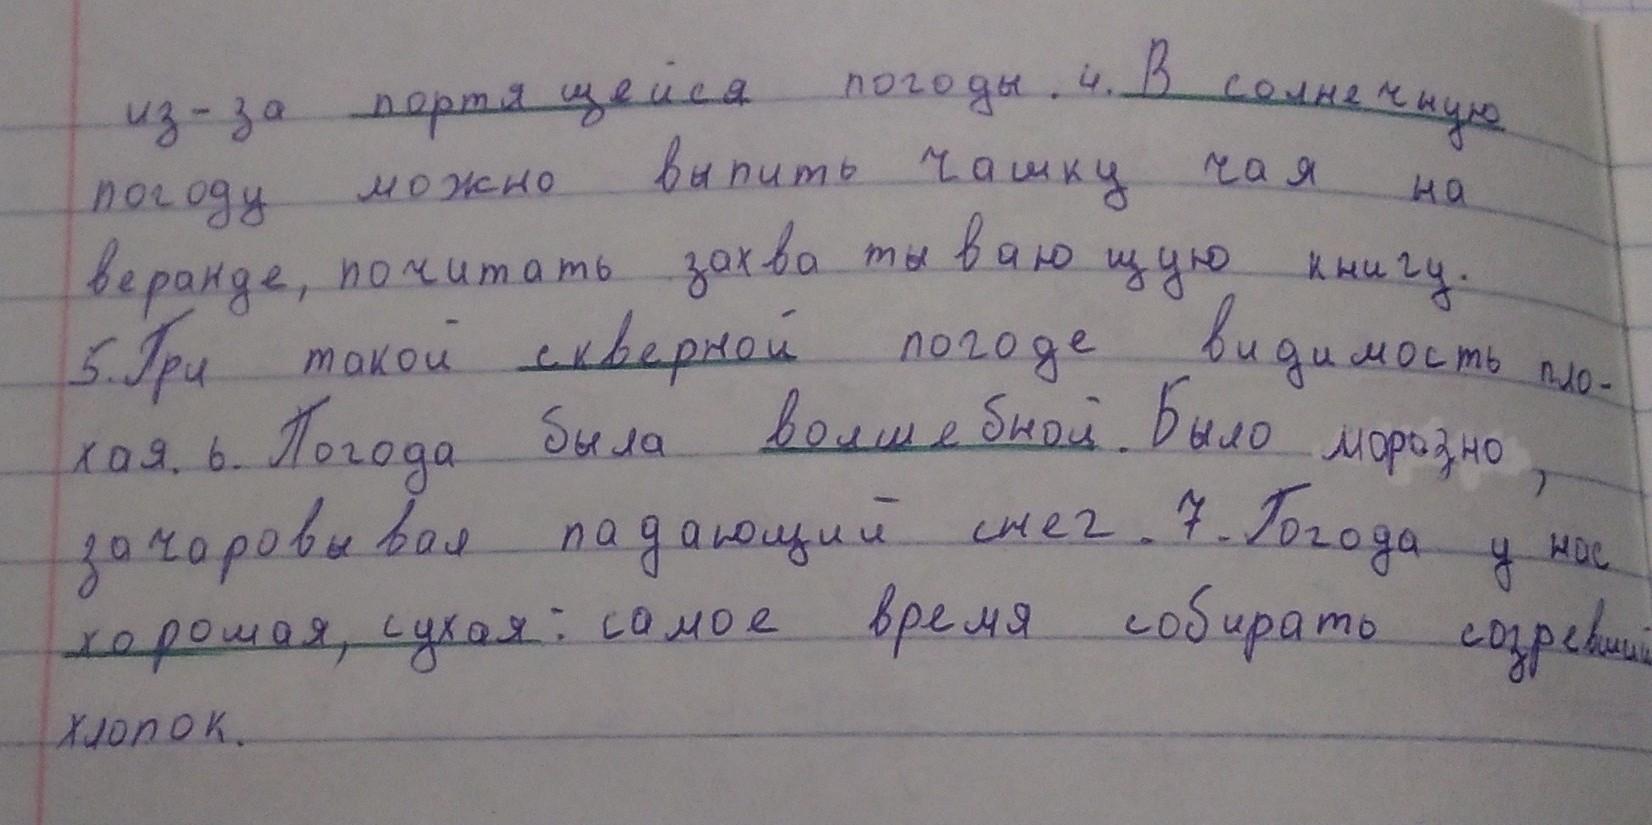 из-за портящейся погоды. 4. В солнечную
погоду можно выпить чашку чая на
веранде, почитать захватывающую книгу.
5. При такой скверной погоде видимость пло-
хая. 6. Погода была волшебной. Было морозно,
зачаровывал падающий снег. 7. Погода у нас
хорошая, сухая: самое время собирать созревший
хлопок.